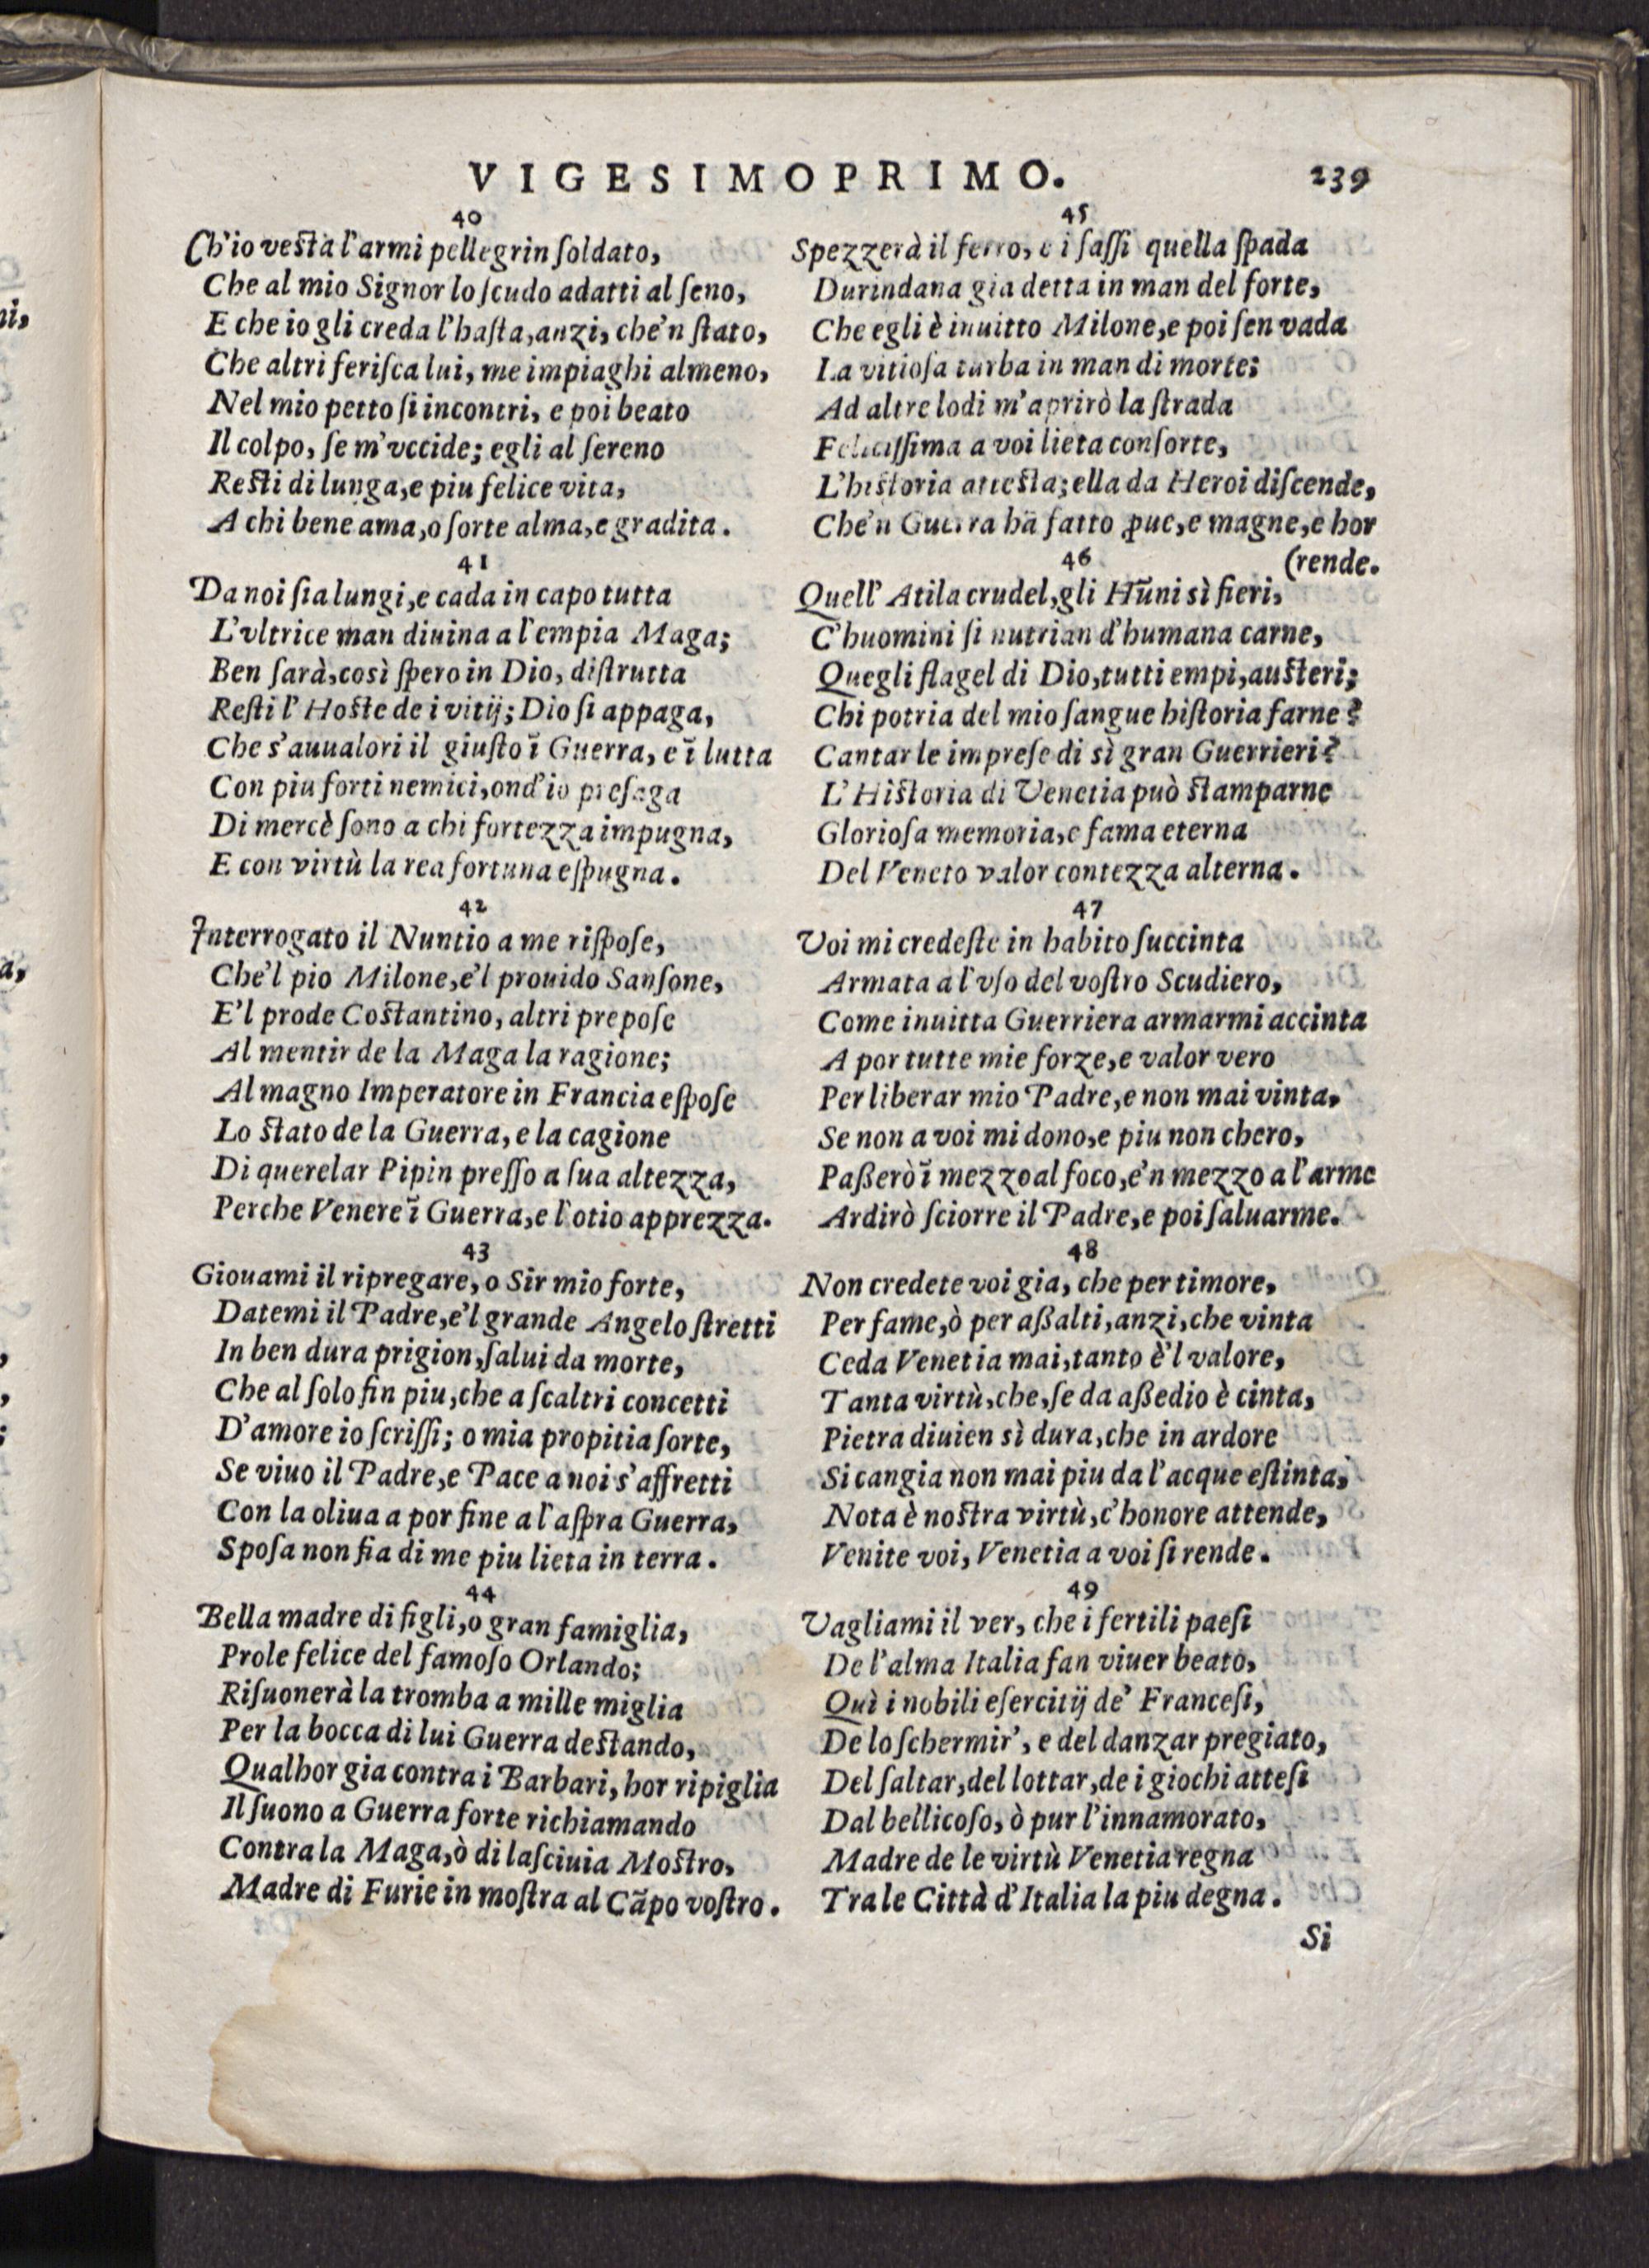 VIGESIMOPRIMO. 239
40
Ch'io vesta l'armi pellegrin ſoldato,
Che al mio Signor lo ſcudo adatti al ſeno,
E che io gli creda l'haſta, anzi, che'n ſtato,
Che altri feriſca lui, me impiaghi almeno,
Nel mio petto ſi incontri, e poi beato
Il colpo, ſe m'vccide; egli al ſereno
Resti di lunga, e piu felice vita,
A chi bene ama, o ſorte alma, e gradita.
41
Da noi ſia lungi, e cada in capo tutta
L'vltrice man diuina a l'empia Maga;
Ben ſarà, così ſpero in Dio, diſtrutta
Reſti l'Hoste de i vitij; Dio ſi appaga,
Che s'auualori il giuſto ĩ Guerra, e ĩ lutta
Con piu forti nemici, ond'io preſaga
Di mercè ſono a chi fortezza impugna,
E con virtù la rea fortuna eſpugna.
42
Interrogato il Nuntio a me riſpoſe,
Che'l pio Milone, e'l prouido Sanſone,
E'l prode Costantino, altri prepoſe
Al mentir de la Maga la ragione;
Al magno Imperatore in Francia eſpoſe
Lo stato de la Guerra, e la cagione
Di querelar Pipin preſſo a ſua altezza,
Perche Venere ĩ Guerra, e l'otio apprezza.
43
Giouami il ripregare, o Sir mio forte,
Datemi il Padre, e'l grande Angelo ſtretti
In ben dura prigion, ſalui da morte,
Che al ſolo fin piu, che a ſcaltri concetti
D'amore io ſcriſſi; o mia propitia ſorte,
Se viuo il Padre, e Pace a noi s'affretti
Con la oliua a por fine a l'aſpra Guerra,
Spoſa non fia di me piu lieta in terra.
44
Bella madre di figli, o gran famiglia,
Prole felice del famoſo Orlando;
Riſuonerà la tromba a mille miglia
Per la bocca di lui Guerra destando,
Qualhor gia contra i Barbari, hor ripiglia
Il ſuono a Guerra forte richiamando
Contra la Maga, ò di laſciuia Mostro,
Madre di Furie in moſtra al Cãpo voſtro.
45
Spezzerà il ferro, e i ſaſſi quella ſpada
Durindana gia detta in man del forte,
Che egli è inuitto Milone, e poi ſen vada
La vitioſa turba in man di morte;
Ad altre lodi m'aprirò la ſtrada
Feliciſſima a voi lieta conſorte,
L'historia attesta; ella da Heroi diſcende,
Che'n Guerra hã fatto ꝓue, e magne, e hor
(rende.
46
Quell'Atila crudel, gli Hũni sì fieri,
C'huomini ſi nutrian d'humana carne,
Quegli flagel di Dio, tutti empi, austeri;
Chi potria del mio ſangue hiſtoria farne?
Cantar le impreſe di sì gran Guerrieri?
L'Historia di Venetia può stamparne
Glorioſa memoria, e fama eterna
Del Veneto valor contezza alterna.
47
Voi mi credeſte in habito ſuccinta
Armata a l'vſo del voſtro Scudiero,
Come inuitta Guerriera armarmi accinta
A por tutte mie forze, e valor vero
Per liberar mio Padre, e non mai vinta,
Se non a voi mi dono, e piu non chero,
Paßerò ĩ mezzo al foco, e'n mezzo a l'arme
Ardirò ſciorre il Padre, e poi ſaluarme.
48
Non credete voi gia, che per timore,
Per fame, ò per aßalti, anzi, che vinta
Ceda Venetia mai, tanto è'l valore,
Tanta virtù, che, ſe da aßedio è cinta,
Pietra diuien sì dura, che in ardore
Si cangia non mai piu da l'acque eſtinta;
Nota è nostra virtù, c'honore attende,
Venite voi, Venetia a voi ſi rende.
49
Vagliami il ver, che i fertili paeſi
De l'alma Italia fan viuer beato,
Quì i nobili eſercitij de' Franceſi,
De lo ſchermir', e del danzar pregiato,
Del ſaltar, del lottar, de i giochi atteſi
Dal bellicoſo, ò pur l'innamorato,
Madre de le virtù Venetia regna
Tra le Città d'Italia la piu degna.
Si